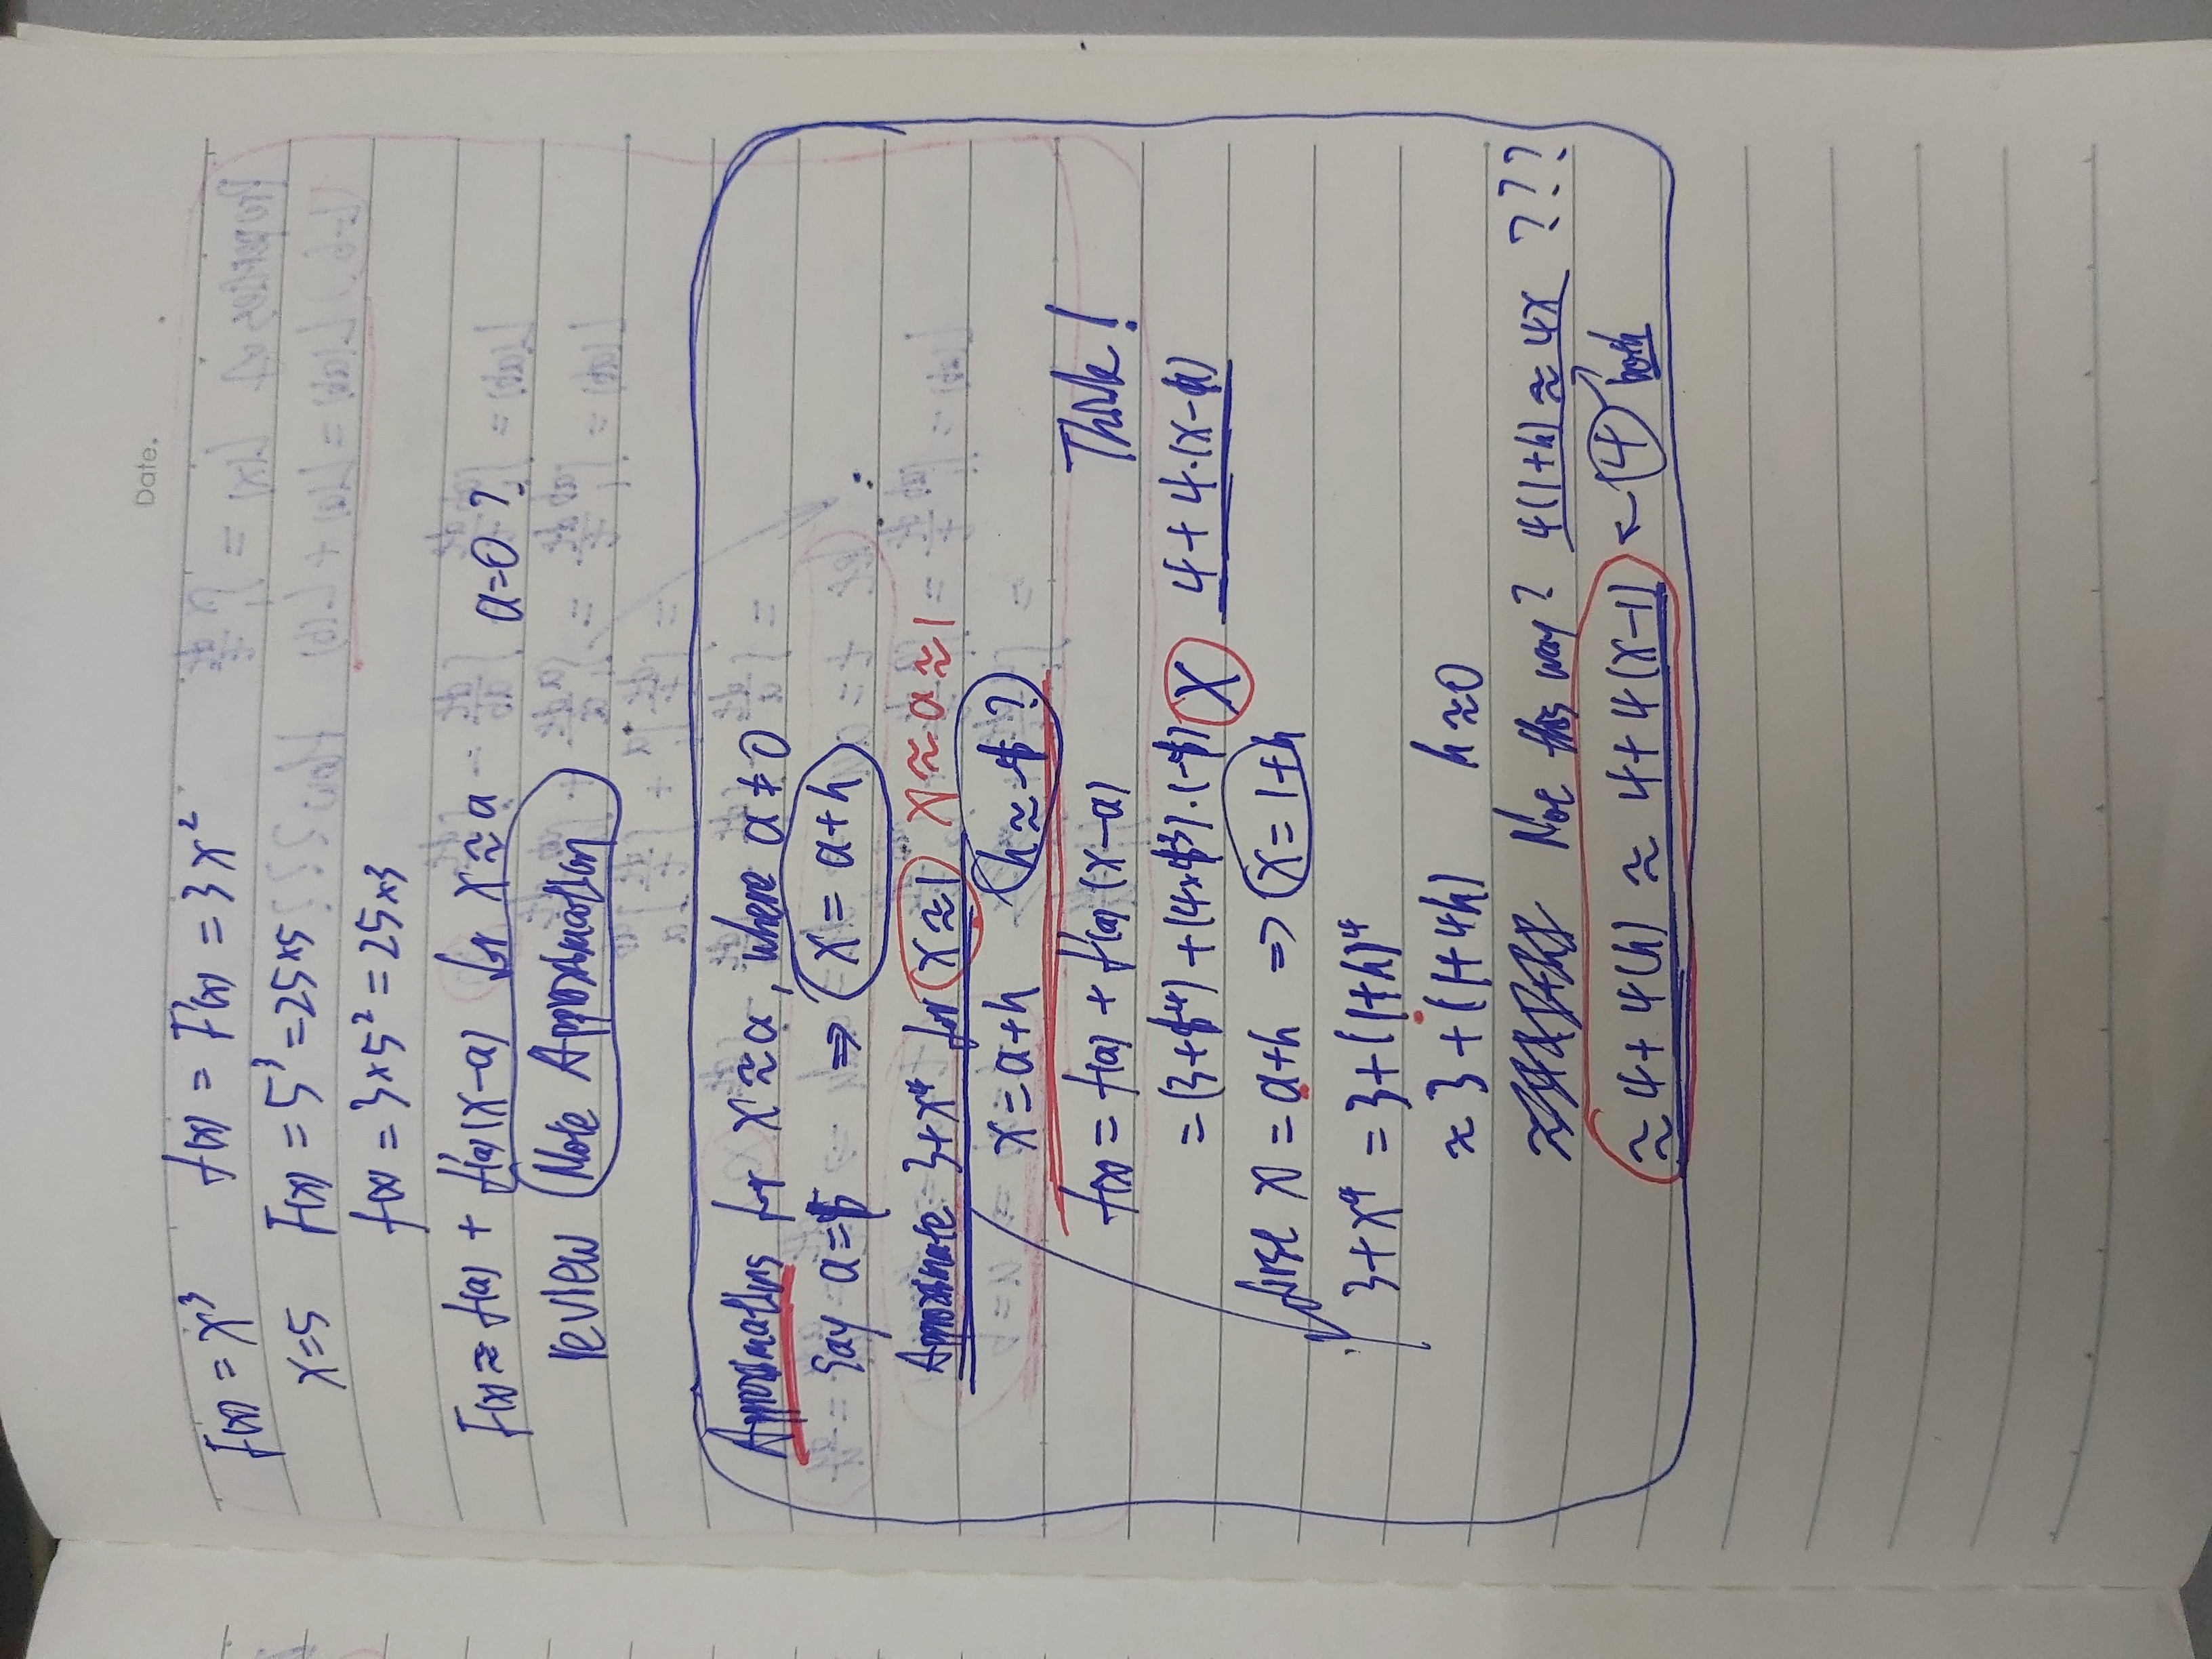 Date.
F(x) = x³ f(x) = F'(x) = 3x²
x=5 F(x) = 5³ = 25×5
f(x) = 3×5² = 25×3
F(x) ≈ f(a) + f'(a)(x-a) for x≈a a=0 ?
review Note Approximation
Approximations for x≈a, where a≠0
Say a= ⇒ x = a+h
Approximate 3+x⁴ for x≈1 x≈a≈1
x = a+h h≈ ?
f(x) = f(a) + f'(a)(x-a) Think!
= (3+ ⁴) + (4× ³)·(- ) X 4+4·(x- )
first x = a+h => x=1+h
3+x⁴ = 3+(1+h)⁴
≈ 3+(1+4h) h≈0
Not this way? 4(1+h) ≈ 4x ???
≈ 4+4(h) ≈ 4+4(x-1) ← 4 both